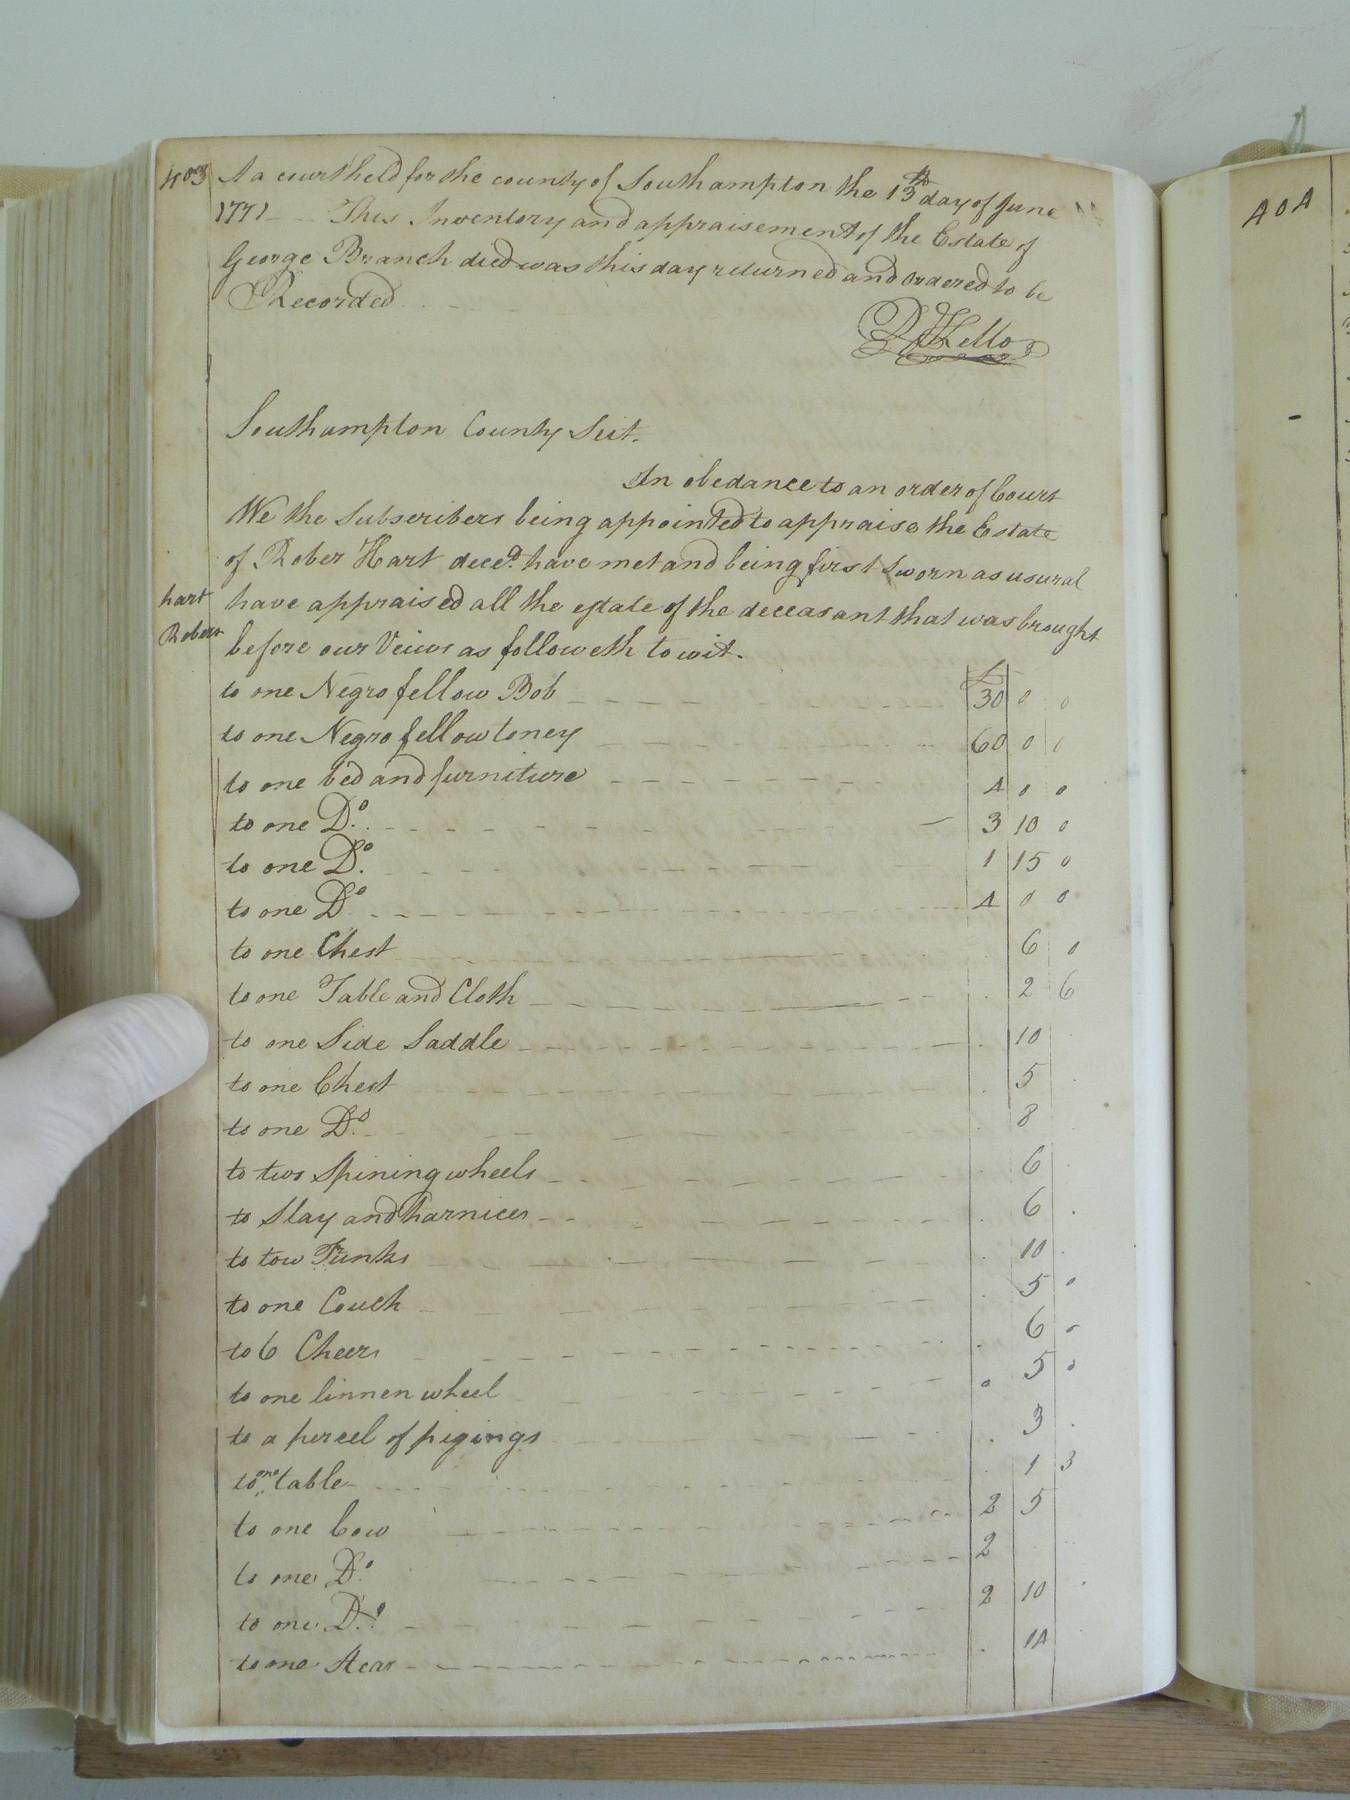 403
At a court held for the county of Southampton the 13th day of June
1771 This Inventory and appraisement of the Estate of
George Branch decd was this day returned and Ordered to be
Recorded
R Kello
Southampton County Sct.
In obedance to an order of Court
We the Subscribers being appointed to appraise the Estate
of Rober Hart deced have met and being first Sworn as usural
hart
have appraised all the estate of the deceasant that was brought
Robert
before our Veiws as followeth to wit.
£
to one Negro fellow Bob 30 0 0
to one Negro fellow toney 60 0 0
to one bed and furniture 4 0 0
to one Do. 3 10 0
to one Do. 1 15 0
to one Do 4 0 0
to one Chest 6 0
to one Table and Cloth 2 6
to one Side Saddle 10
to one Chest 5
to one Do. 8
to two Spining wheels 6
to Slay and harnices 6
to tow Trunks 10
to one Couch 5 0
to 6 Cheers 6 0
to one linnen wheel 0 5 0
to a percel of pigings 3
to one table 1 3
to one Cow 2 5
to one Do. 2
to one Do. 2 10
to one Stear 14
404